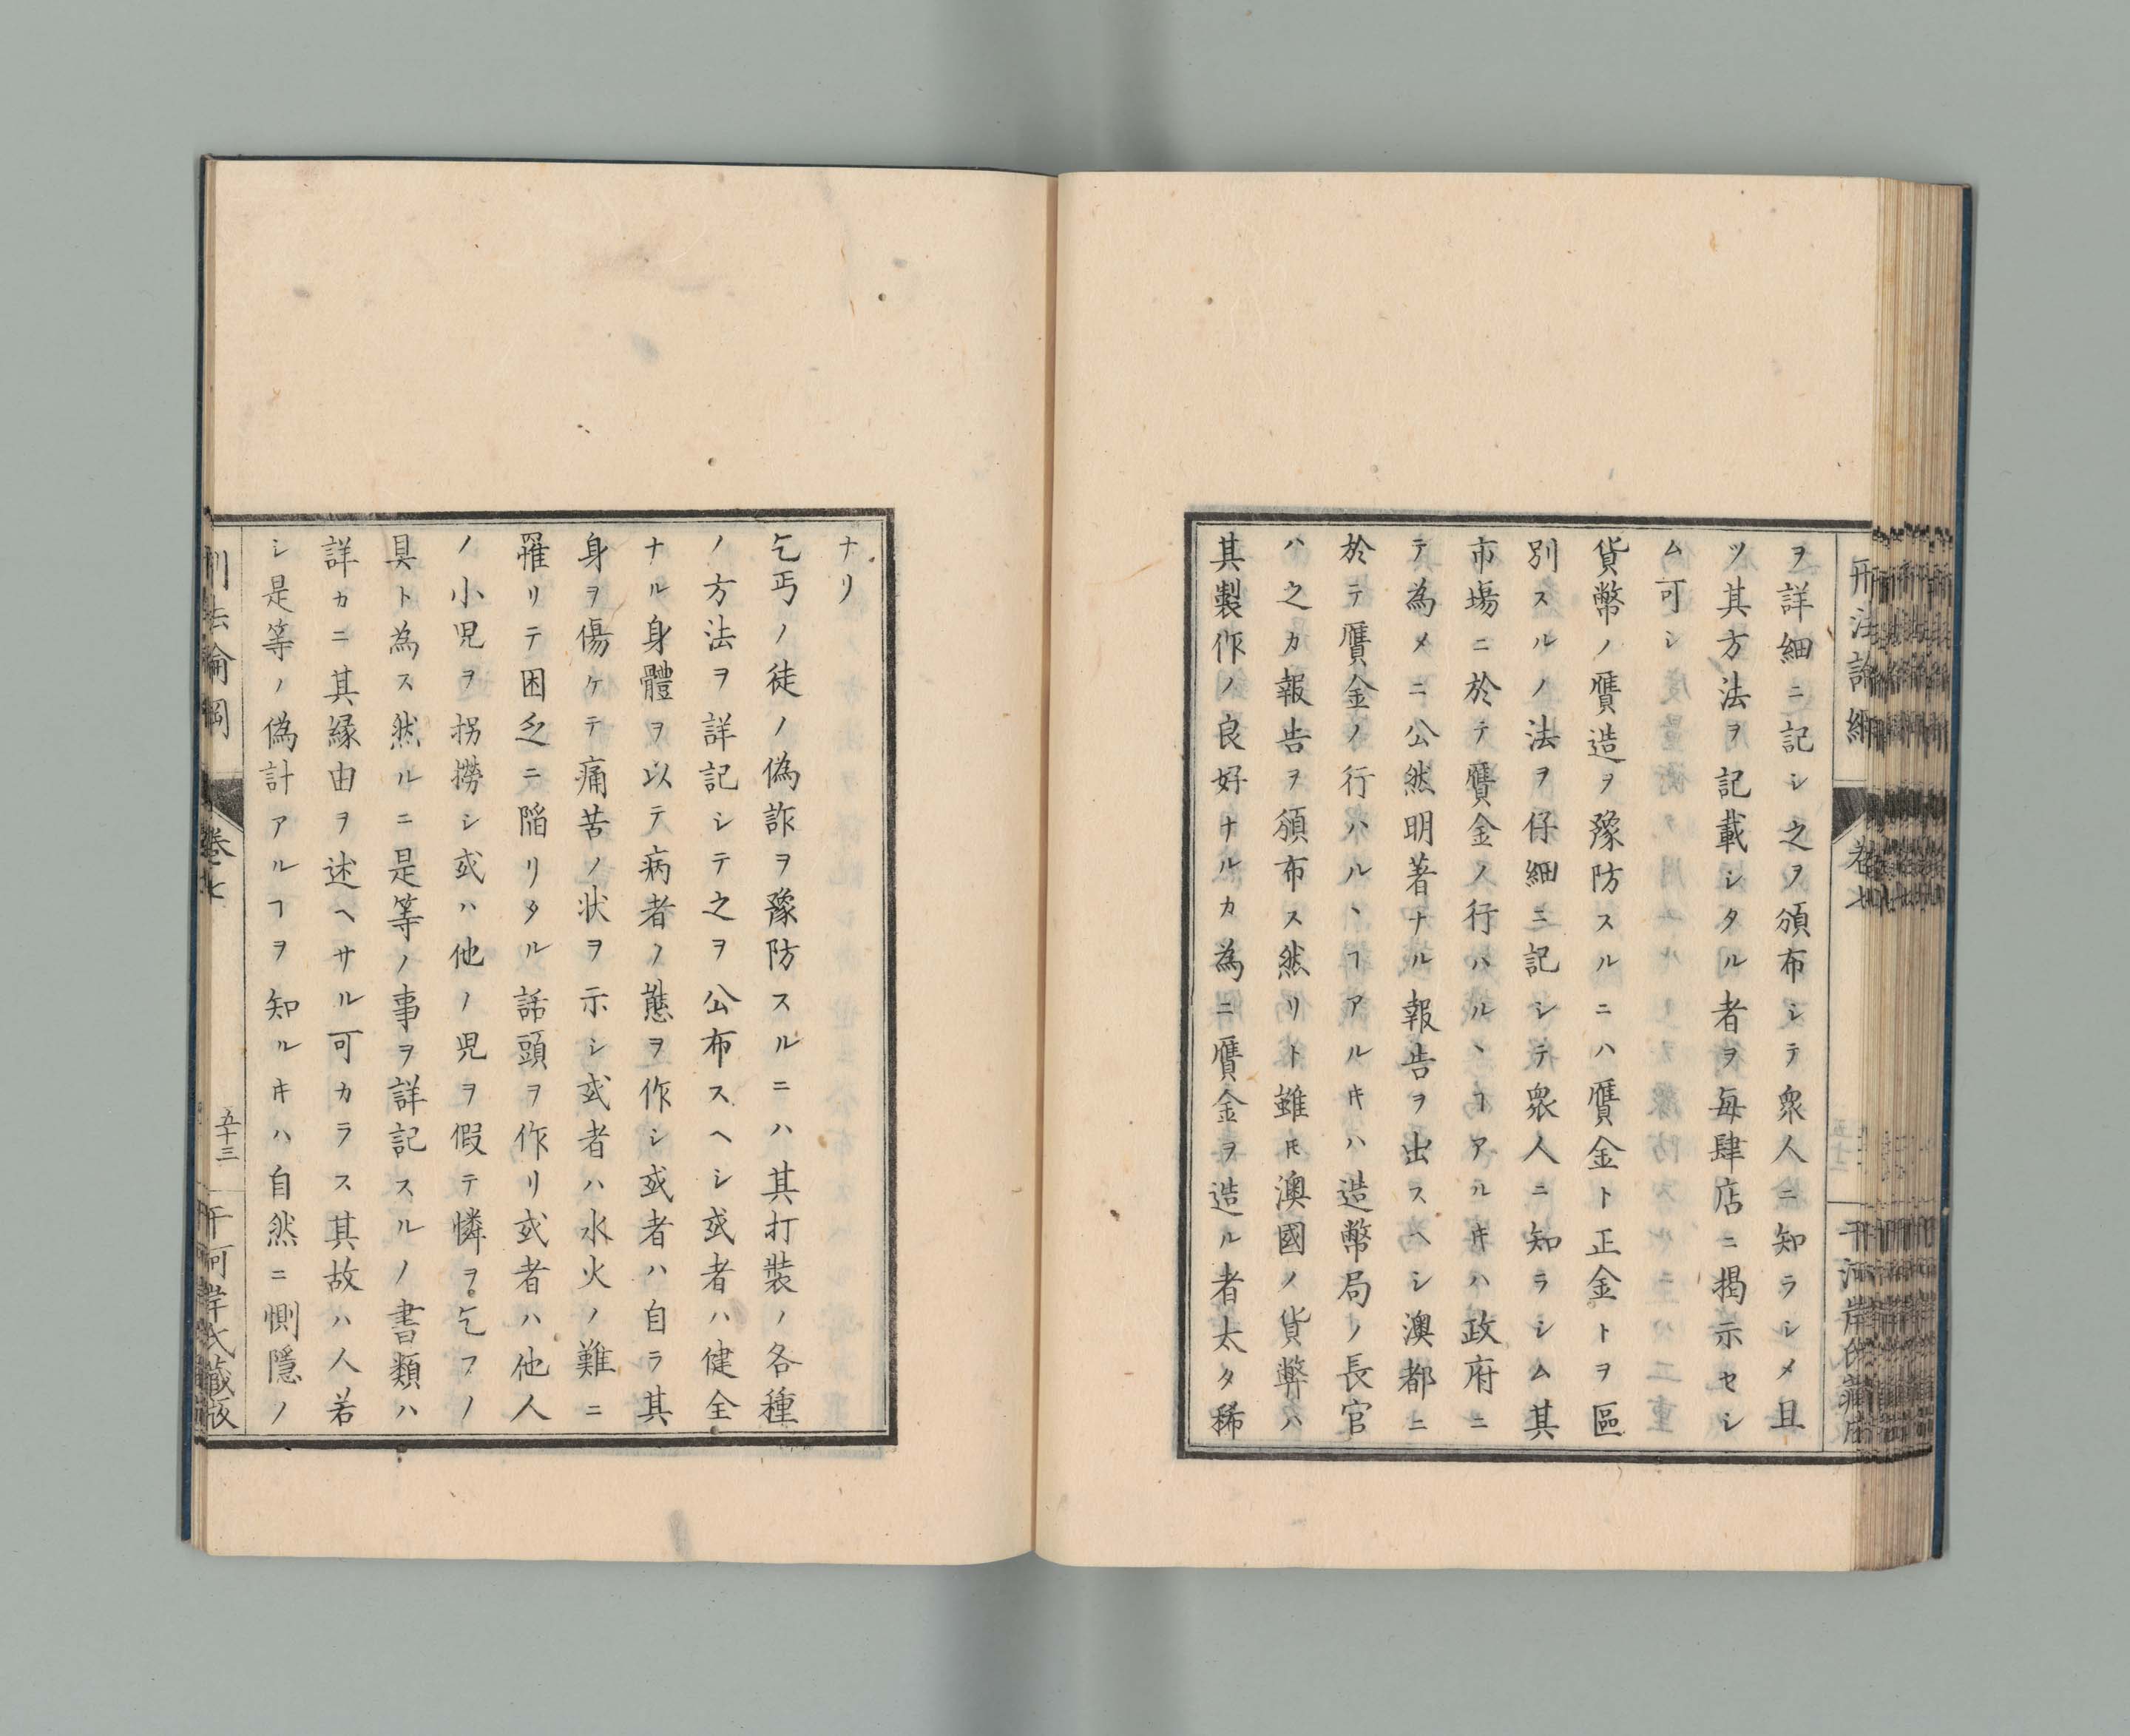 ヲ詳細ニ記シ之ヲ頒布シテ衆人ニ知ラシメ且
ツ其方法ヲ記載シタル者ヲ毎肆店ニ掲示セシ
ム可シ
貨幣ノ贋造ヲ豫防スルニハ贋金ト正金トヲ區
別スルノ法ヲ仔細ニ記シテ衆人ニ知ラシム其
市場ニ於テ贋金ノ行ハルヽヿアルキハ政府ニ
テ為メニ公然明著ナル報告ヲ出スヘシ澳都ニ
於テ贋金ノ行ハルヽヿアルキハ造幣局ノ長官
ハ之カ報告ヲ頒布ス然リト雖𪜈澳國ノ貨弊ハ
其製作ノ良好ナルカ為ニ贋金ヲ造ル者太タ稀
ナリ
乞丐ノ徒ノ偽詐ヲ豫防スルニハ其打裝ノ各種
ノ方法ヲ詳記シテ之ヲ公布スヘシ或者ハ健全
ナル身體ヲ以テ病者ノ態ヲ作シ或者ハ自ラ其
身ヲ傷ケテ痛苦ノ状ヲ示シ或者ハ水火ノ難ニ
罹リテ困乏ニ陥リタル話頭ヲ作リ或者ハ他人
ノ小児ヲ拐撈シ或ハ他ノ児ヲ假テ憐ヲ乞フノ
具ト為ス然ルニ是等ノ事ヲ詳記スルノ書類ハ
詳カニ其縁由ヲ述ヘサル可カラス其故ハ人若
シ是等ノ偽計アルヿヲ知ルキハ自然ニ惻隱ノ
刑法論綱
卷七
五十三
千河岸氏蔵版